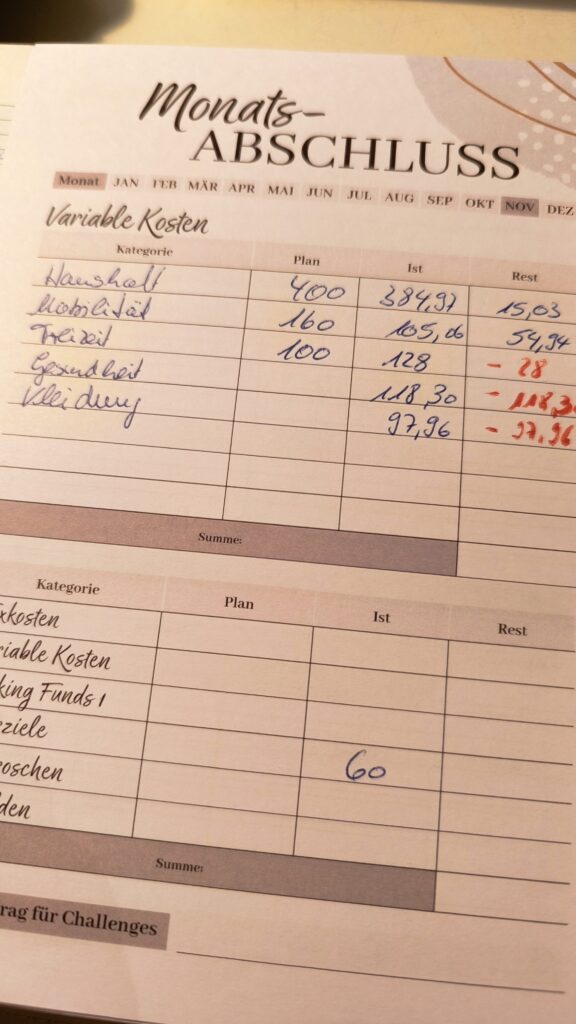 Monats-
ABSCHLUSS
Monat JAN FEB MÄR APR MAI JUN JUL AUG SEP OKT NOV DEZ
Variable Kosten
Kategorie Plan Ist Rest
Haushalt 400 384,97 15,03
Mobilität 160 105,06 54,94
Freizeit 100 128 - 28
Gesundheit 118,30 - 118,30
Kleidung 97,96 - 97,96
Summe:
Kategorie Plan Ist Rest
xkosten
riable Kosten
king Funds 1
eziele
oschen 60
den
Summe:
rag für Challenges